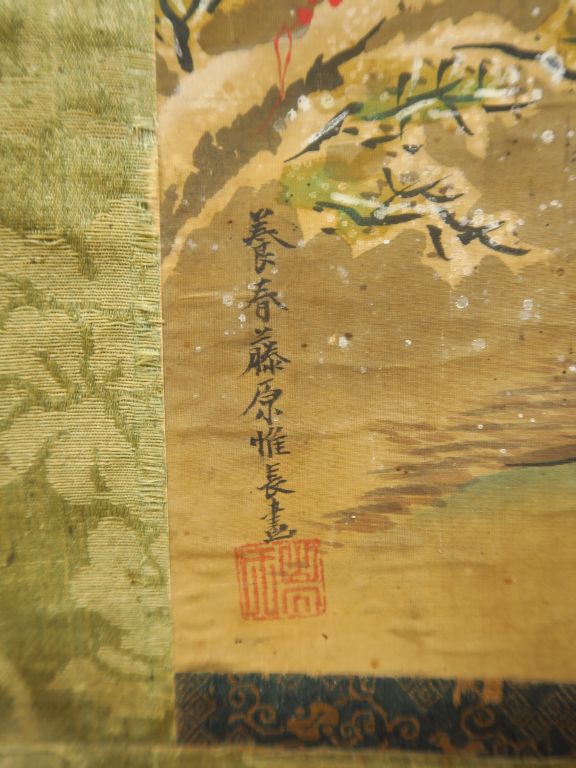 養春藤原惟長畫